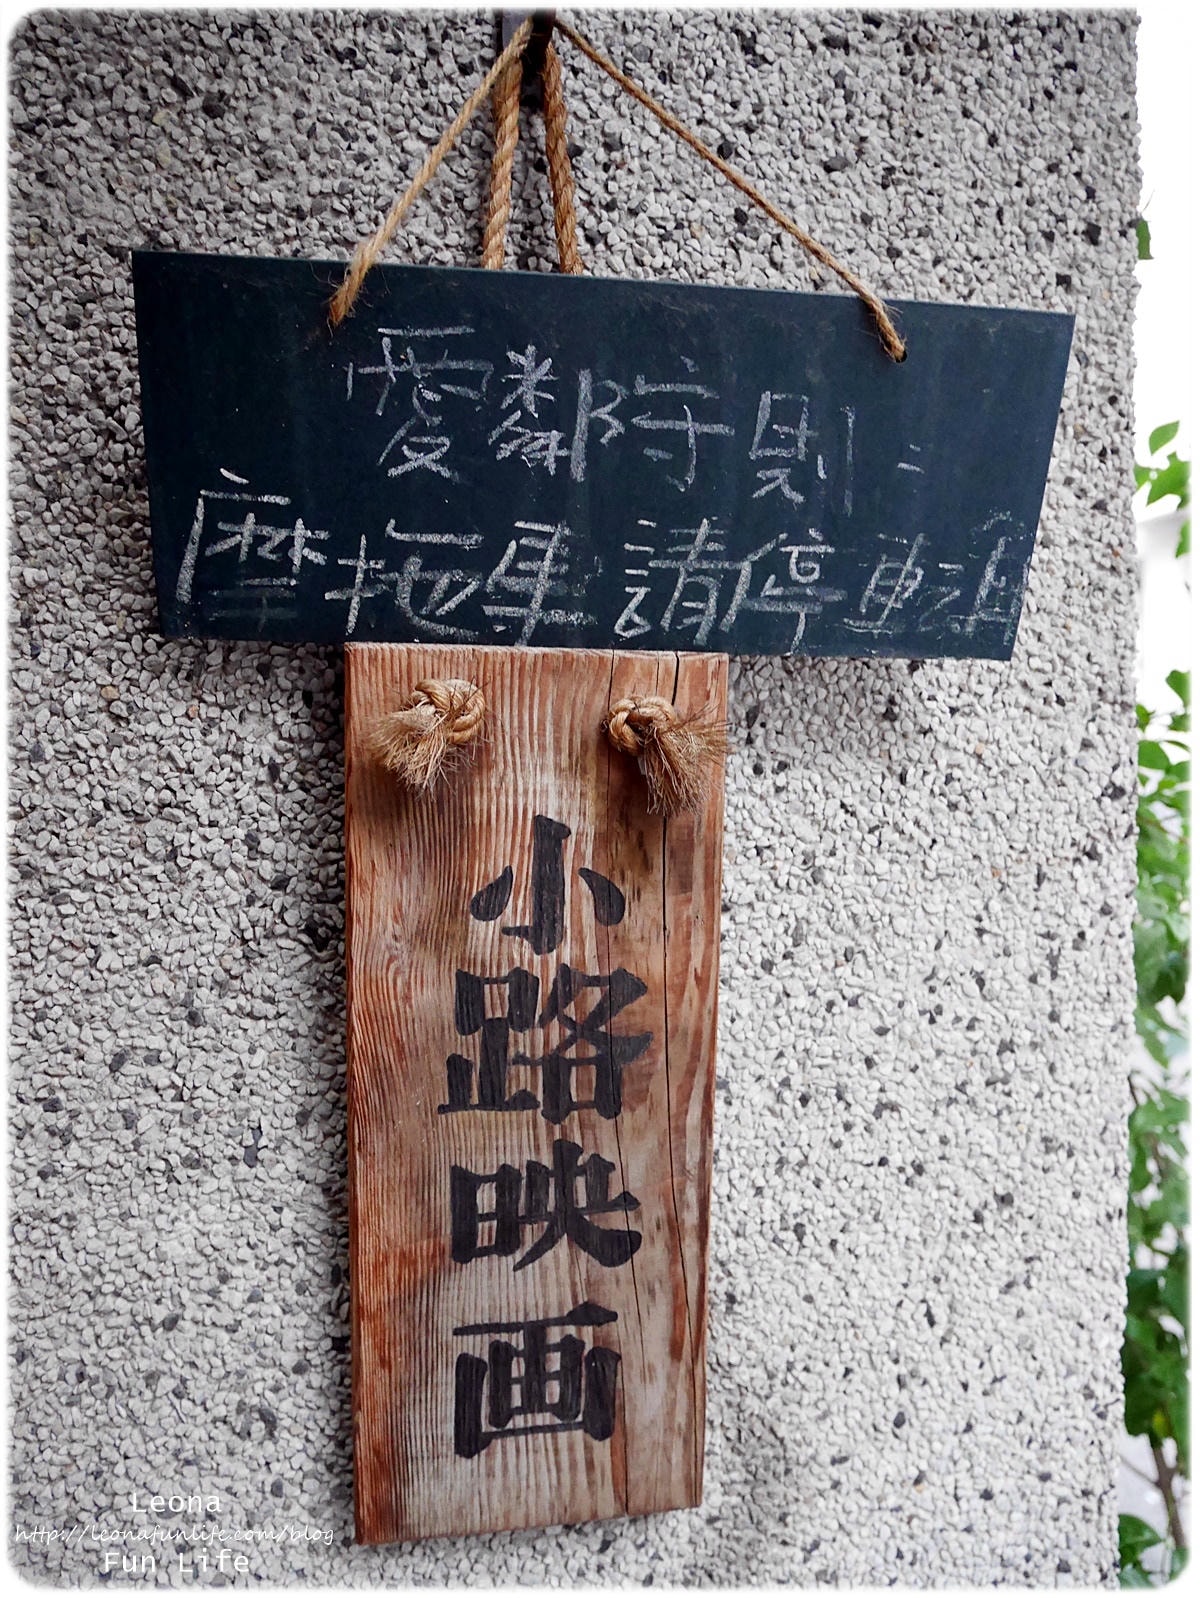 愛鄰守則：
摩拖車請停車
小路映画
Leona
http://leonafunlife.com/blog
Fun Life